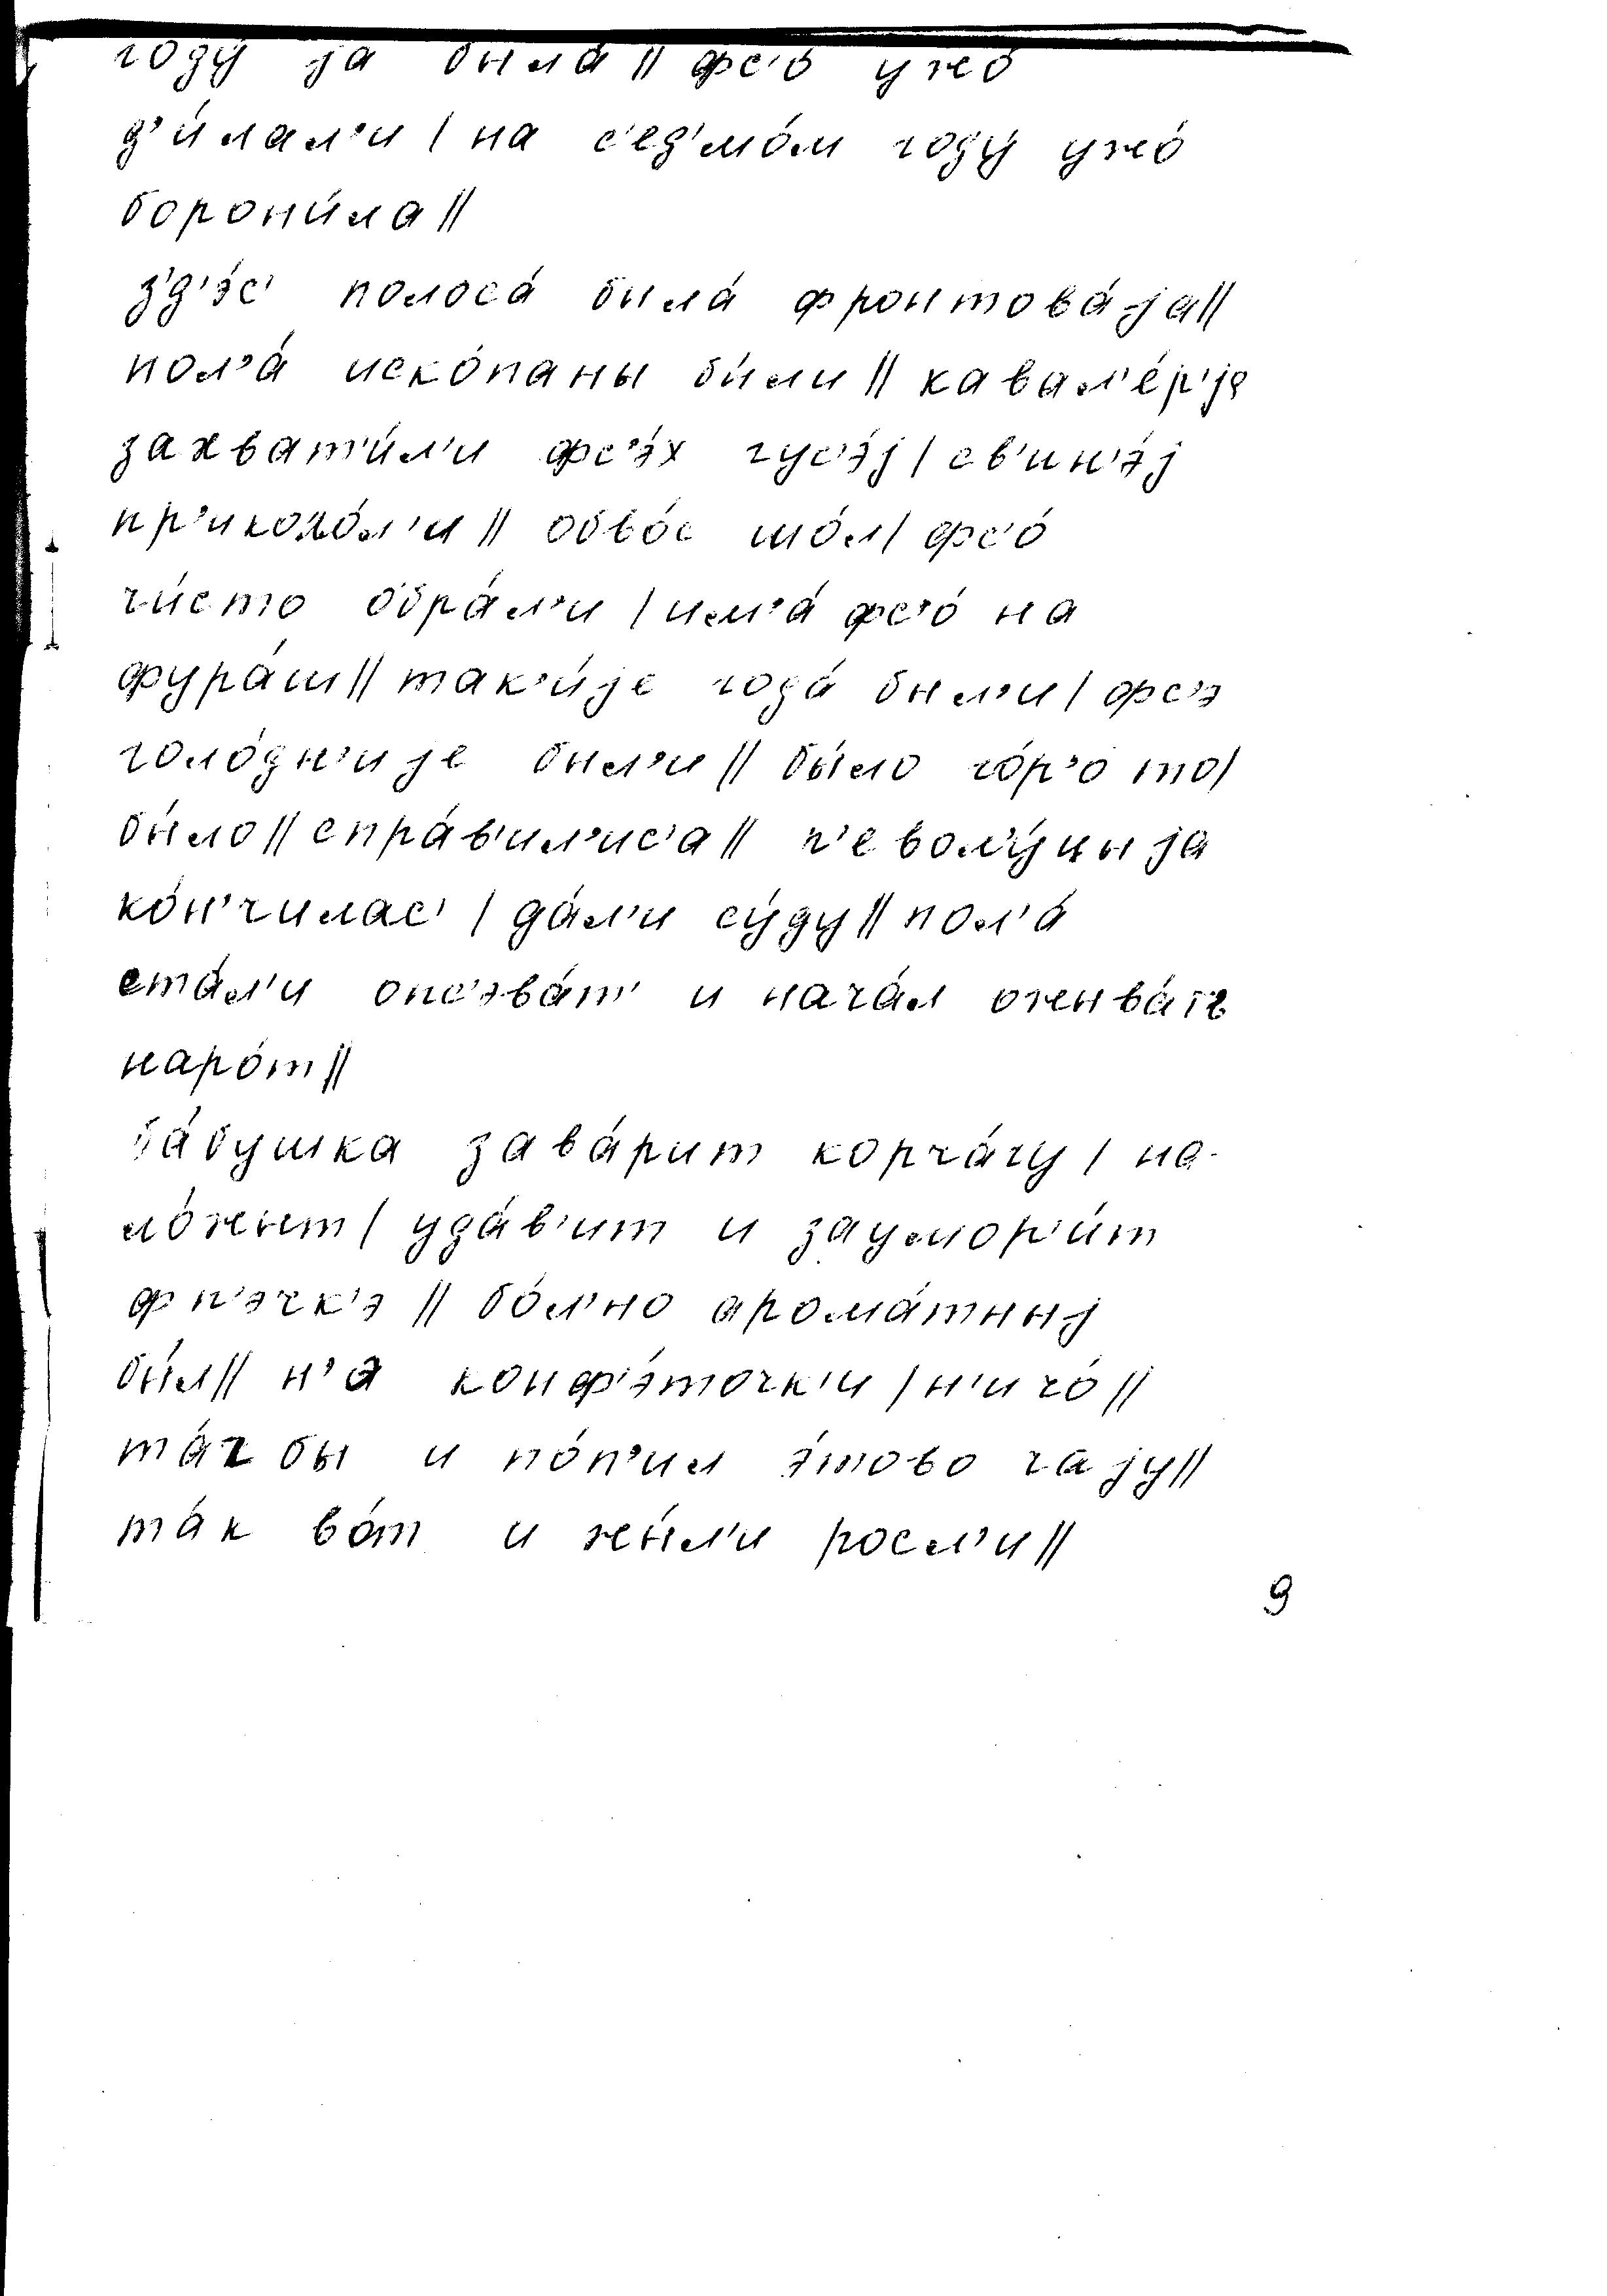 году́ jа была́ || фс'о́ ужо́
д'и́лал'и | на с'ед'мо́м году́ ужо́
борони́ла ||
з'д'э́с' полоса́ была́ фронтова́jа ||
пол'а́ иско́паны бы́ли || кавал'е́р'jе
захват'и́л'и фс'э́х гус'э́j | св'ин'э́j
пр'иколо́л'и || обво́с шо́л | фс'о́
чи́сто обра́л'и | им'а́ фс'о́ на
фура́ш || так'и́jе года́ был'и | фс'э
голо́дн'иjе был'и || бы́ло го́р'о то |
бы́ло || спра́в'ил'ис'а || р'евол'у́цыjа
ко́н'чилас' | да́л'и су́ду || пол'а́
ста́л'и опс'эва́т' и нача́л ожыва́ть
наро́т ||
ба́бушка зава́рит корча́гу | на-
ло́жыт | уда́в'ит и заумор'и́т
фп'эчк'э || бо́л'но арома́тныj
бы́л || н'э конф'э́точк'и | н'ичо́ ||
та́г бы и по́п'ил э́тово чаjу ||
та́к во́т и жы́л'и росл'и ||
9